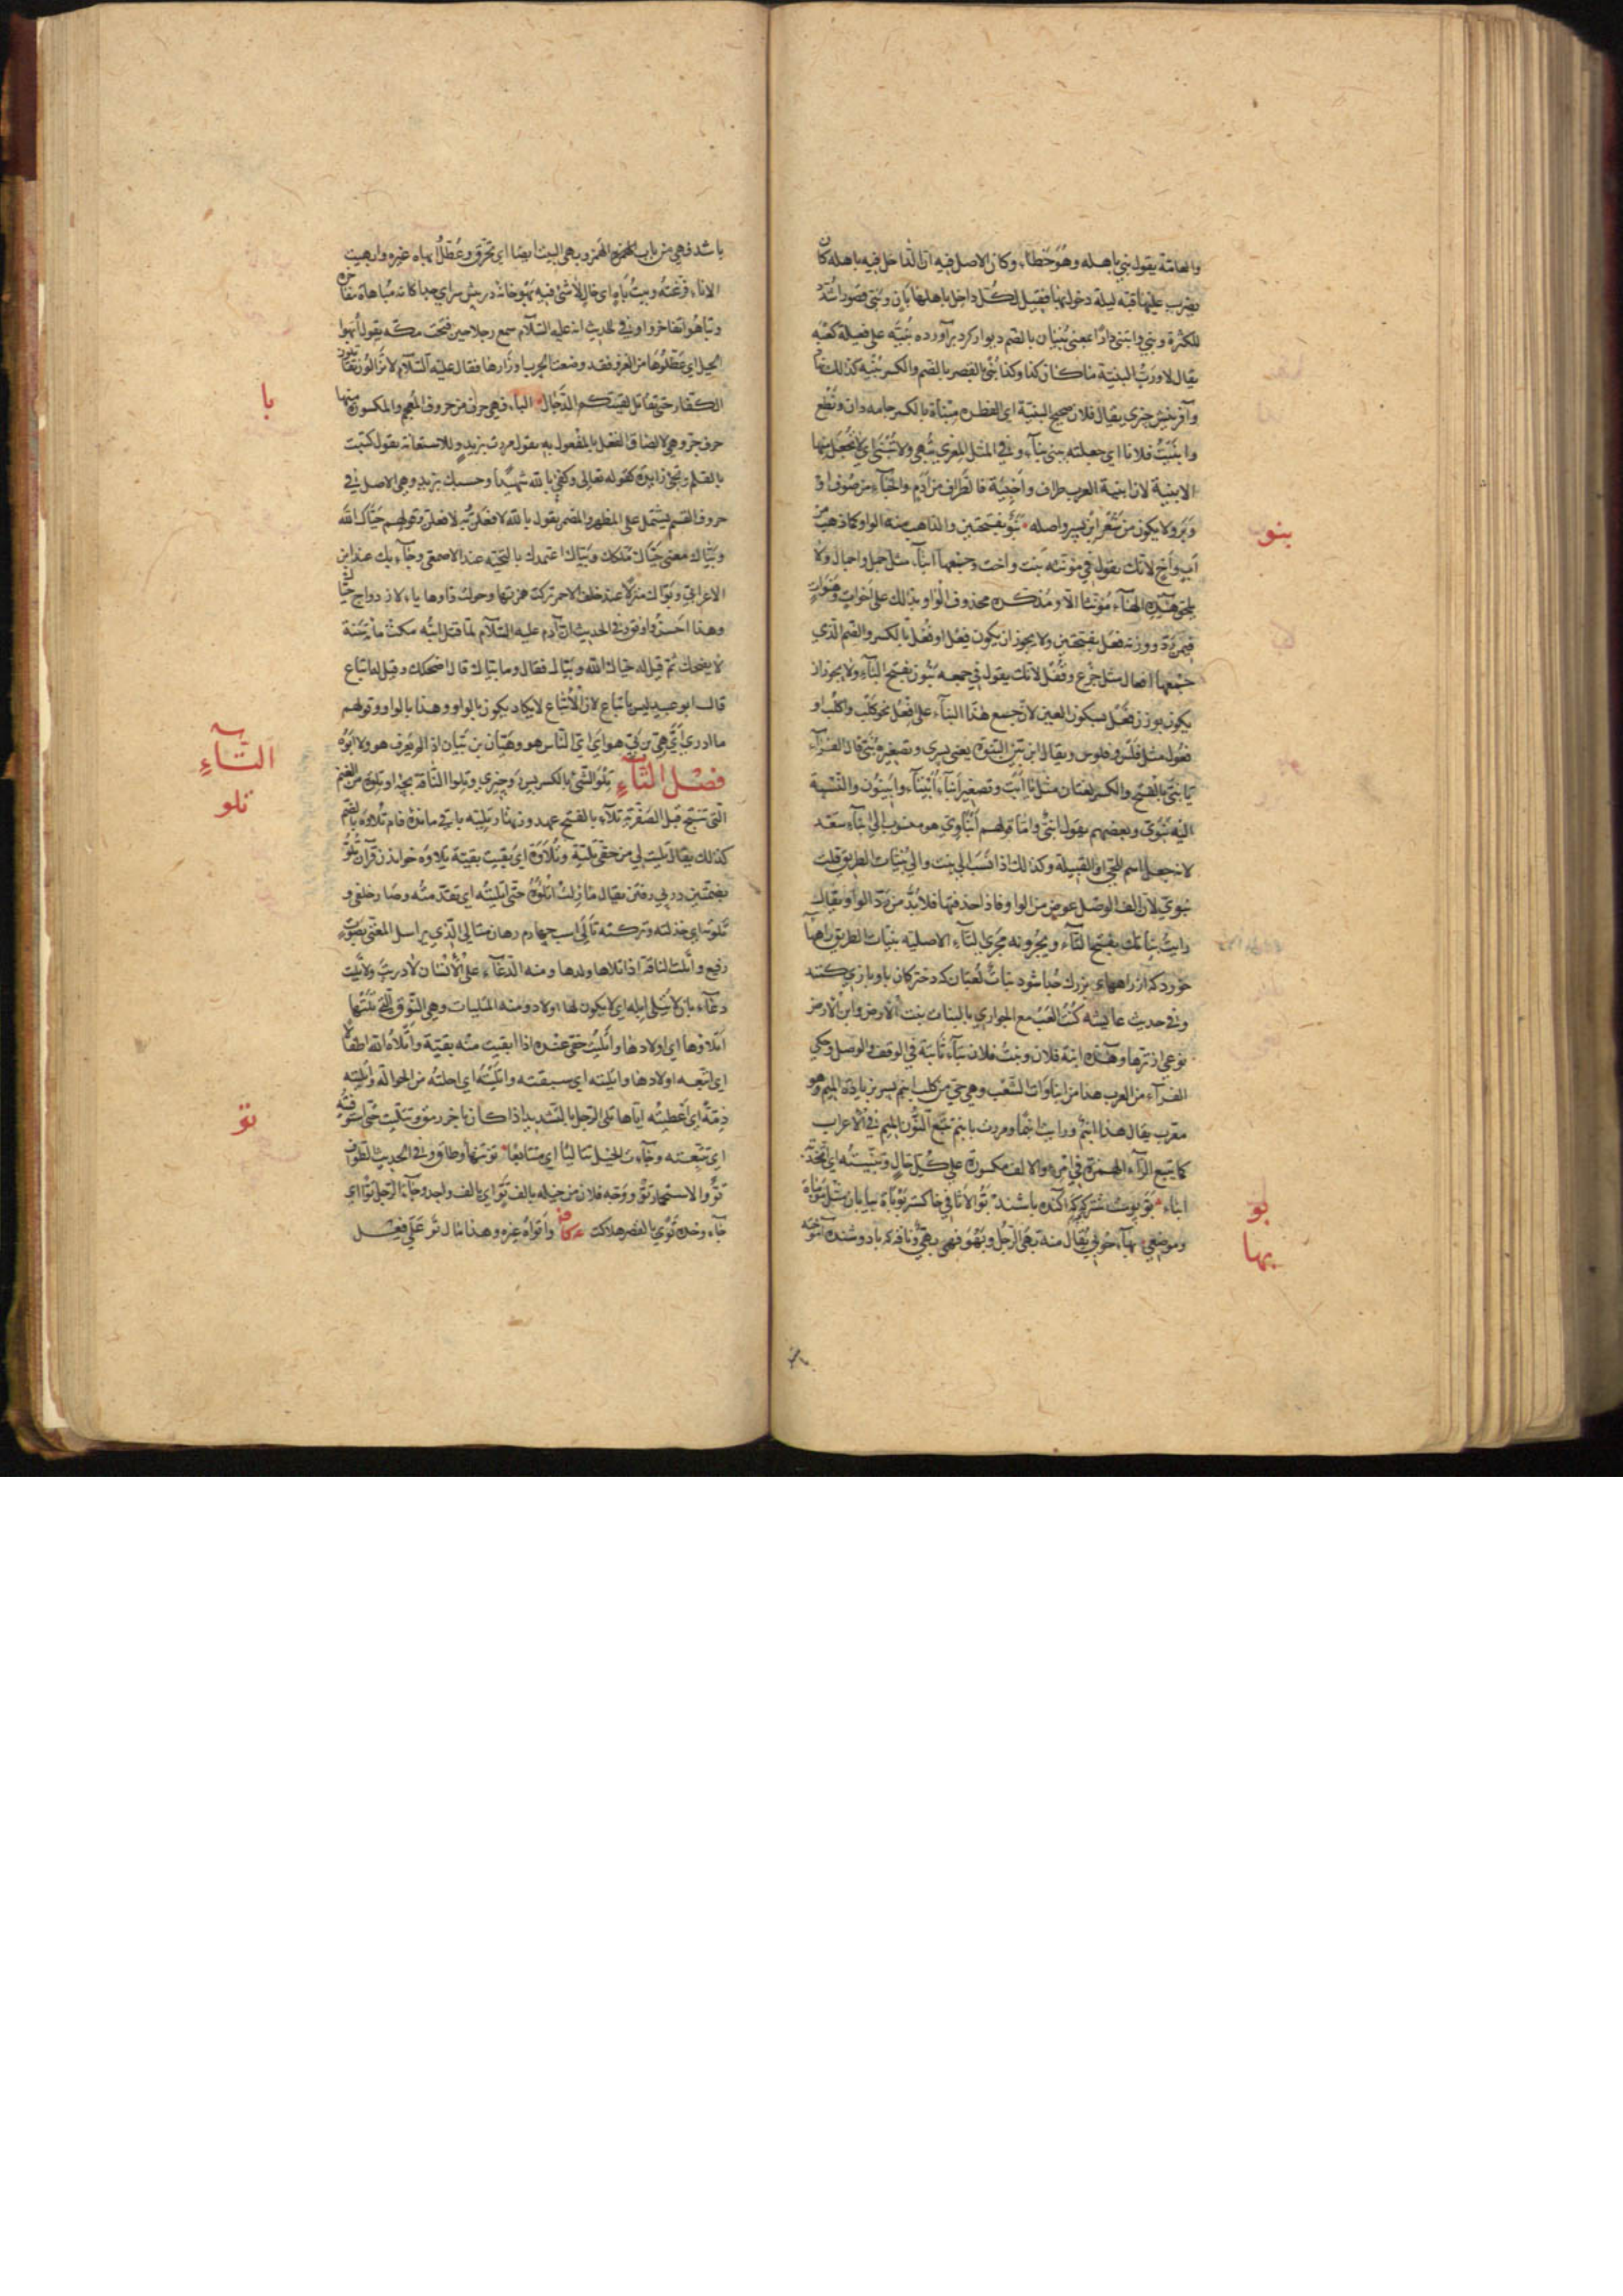 والعامّة يقول بني باهله وهو خطاء وكان الاصل فيه ان الدّاخل فيه باهله كان
يضرب عليها قبّة ليلة دخوله بها فقيل لكلّ داخل باهله بان وبنى قصورا شدّد
للكثرة وبنى وابتنى دارا بمعنى بنيان بالضم ديوار كرد برآورده بنيّه على فعيلة كعبه
يقال لا وربّ البنيّة ما كان كذا وكذا بنى بالقصر بالضم والكسر بنيه كذلك
وآفرينش چيزى يقال فلان صحيح البنية اى الفطره مبناة بالكسر جامه دان ونطع
وابنيت فلانا اى جعلته يبنى بناء وفى المثل المعزى تبهى ولا تبنى اى لا تجعل منها
الابنية لان ابنية العرب طراف واخبية فالطّراف من ادم والخباء من صوف او
وبر ولا يكون من شعر ابن پسر واصله بنو بفتحتين والذاهب منه الواو كما ذهب من
اب واخ لانّك يقول فى مؤنثه بنت واخت وجمعها ابناء مثل جمل واجمال ولا
يلحق هذه الهاء مؤنثا الّا ومذكره محذوف الواو بذالك على اخوات وهنوات
فيمن ردّ ووزنه فعل بفتحتين ولا يجوز ان يكون فعل او فعل بالكسر والضم الذى
جمعها افعال مثل جذع وقفل لانك يقول فى جمعه بنون بفتح الباء ولا يجوز ان
يكون بوزن فعل بسكون العين لان جمع هذا البناء على افعل نحو كلب واكلب او
فعول مثل فلس وفلوس ويقال ابن بيّن البنوّة يعنى پسرى وتصغيره بنىّ قال الفراء
يا بنىّ بالفتح والكسر لغتان مثل يا ابت وتصغير ابناء ابيناء وابينون والنسبة
اليه بنوى وبعضهم يقول ابنى وامّا قولهم ابناوى هو منسوب الى ابناء سعد
لانه جعل اسم للحى او القبيلة وكذلك اذا نسب الى بنت والى بنيات الطريق قلت
بنوى لان الف الوصل عوض من الواو فاذا حذفتها فلا بدّ من ردّ الواو ويقال
رايت بناتك بفتح التاء ويجرونه مجرى التاء الاصليه بنيات الطريق راههاء
خورد كه از راههاء بزرك جدا شود بنات لعبتان كه دختركان با و بازى كنند
وفى حديث عايشه كنت العب مع الجوارى بالبنات بنت الارض وابن الارض
نوعى از ترها وهذه ابنة فلان وبنت فلان بتاء ثابتة فى الوقف والوصل وحكى
الفراء من العرب هذا من ابناوات الشعب وهى حى من كلب ابنم پسر بزيادة الميم وهو
معرب يقال هذا ابنم ورايت ابنما ومررت بابنم تتبع النون الميم فى الاعراب
كما يتبع الراء الهمزة فى امرء والالف مكسورة على كل حال وتبنّيته اى اتخذته
ابناء بوّ پوست شتركره آكنده باشند بوّ الاثافى خاكستر بوباة بيابان مثل موماة
وموضعى بهاء خوبى يقال منه بهى الرجل وبهو فهى بهى وناقه كه با دوشنده آموخته
بنو
بو
بها
باشد فهى من باب المهموز وبهى البيت ايضا اى تخرّق وعطّل ابهاه غيره وابهيت
الاناء فرغته وبيت باه اى خال لا شئ فيه بهو خانه در پيش سراى جدا كانه مباهاة مفاخرة
وتباهوا تفاخروا وفى الحديث انه عليه السلام سمع رجلا حين فتحت مكه يقول ابهوا
الخيل اى عطّلوها من الغزو فقد وضعت الحرب اوزارها فقال عليه السلام لا تزالون تقاتلون
الكفّار حتى تقاتل بقيّتكم الدّجّال الباء فهى حرف من حروف المعجم والمكسورة منها
حرف جر وهى لالصاق الفعل بالمفعول به يقول مررت بزيد وللاستعانة يقول كتبت
بالقلم وتجئ زايدة كقوله تعالى وكفى بالله شهيدا وحسبك بزيد وهى الاصل فى
حروف القسم يشتمل على المظهر والمضمر يقول بالله لافعلنّ به لافعلن وقولهم حيّاك الله
وبيّاك معنى حيّاك ملكك وبيّاك اعتمدك بالتحيّة عند الاصمعى وجاء بك عند ابن
الاعرابى وبوّاك منزلا عند خلف الاحمر تركت همزتها وحولت واوها ياء لازدواج حيّاك
وهذا احسن واوفق وفى الحديث ان آدم عليه السلام لمّا قتل ابنه مكث مائة سنة
لا يضحك ثم قيل له حياك الله وبيّاك فقال وما بيّاك قال اضحكك وقيل انه اتباع
قال ابو عبيد ليس باتباع لان الاتباع لا يكاد يكون بالواو وهذا بالواو وقولهم
ما ادرى اىّ هىّ بن بىّ هو اى اىّ الناس هو وهيّان بن بيّان اذا لم يعرف هو ولا ابوه
فصل التاء تلو الشئ بالكسر پس رو چيزى وتلو الناقة بچه او تلوة من الغنم
التى تنتج قبل الصفريّة تلاء بالفتح عهد وزنهار وتليّه باقى مانده وام تلاوة بالضم
كذلك يقال تليت لى من حقى تليّة وتلاوة اى بقيت بقية تلاوة خواندن قرآن تلوّ
بضمتين در پى رفتن يقال ما زلت اتلوه حتى اتليته اى تقدمته وصار خلفى و
تلوته اى خذلته وتركته تالى اسب چهارم رهان متالى الذى يراسل المغنّى بصوت
رفيع واتلت الناقة اذا تلاها ولدها ومنه الدعاء على الانسان لا دريت ولا اتليت
دعاء بان لا تتلى ابله اى لا يكون لها اولاد ومنه المتليات وهى النوق التى تلتها
اتلاوها اى اولادها واتليت حقى عنده اذا ابقيت منه بقية واتلاه الله اطفالا
اى اتبعه اولادها واتليته اى سبقته واتليته اى احلته من الحوالة واتليته
ذمّة اى اعطيته اياها تلّى الرجل بالتشديد اذا كان باخر رمق وتتلّيت حقى
اى تتبعته وجاءت الخيل تتاليا اى متتابعا توّ تنها وطاق وفى الحديث الطواف
توّ والاستجمار توّ ووجه فلان من خيله بالف توّ اى بالف واحد وجاء الرجل توّا اى
جاء وحده توى بالقصر هلاكت واتواه غيره وهذا مال تو على فعل
با
التاء
تلو
تو